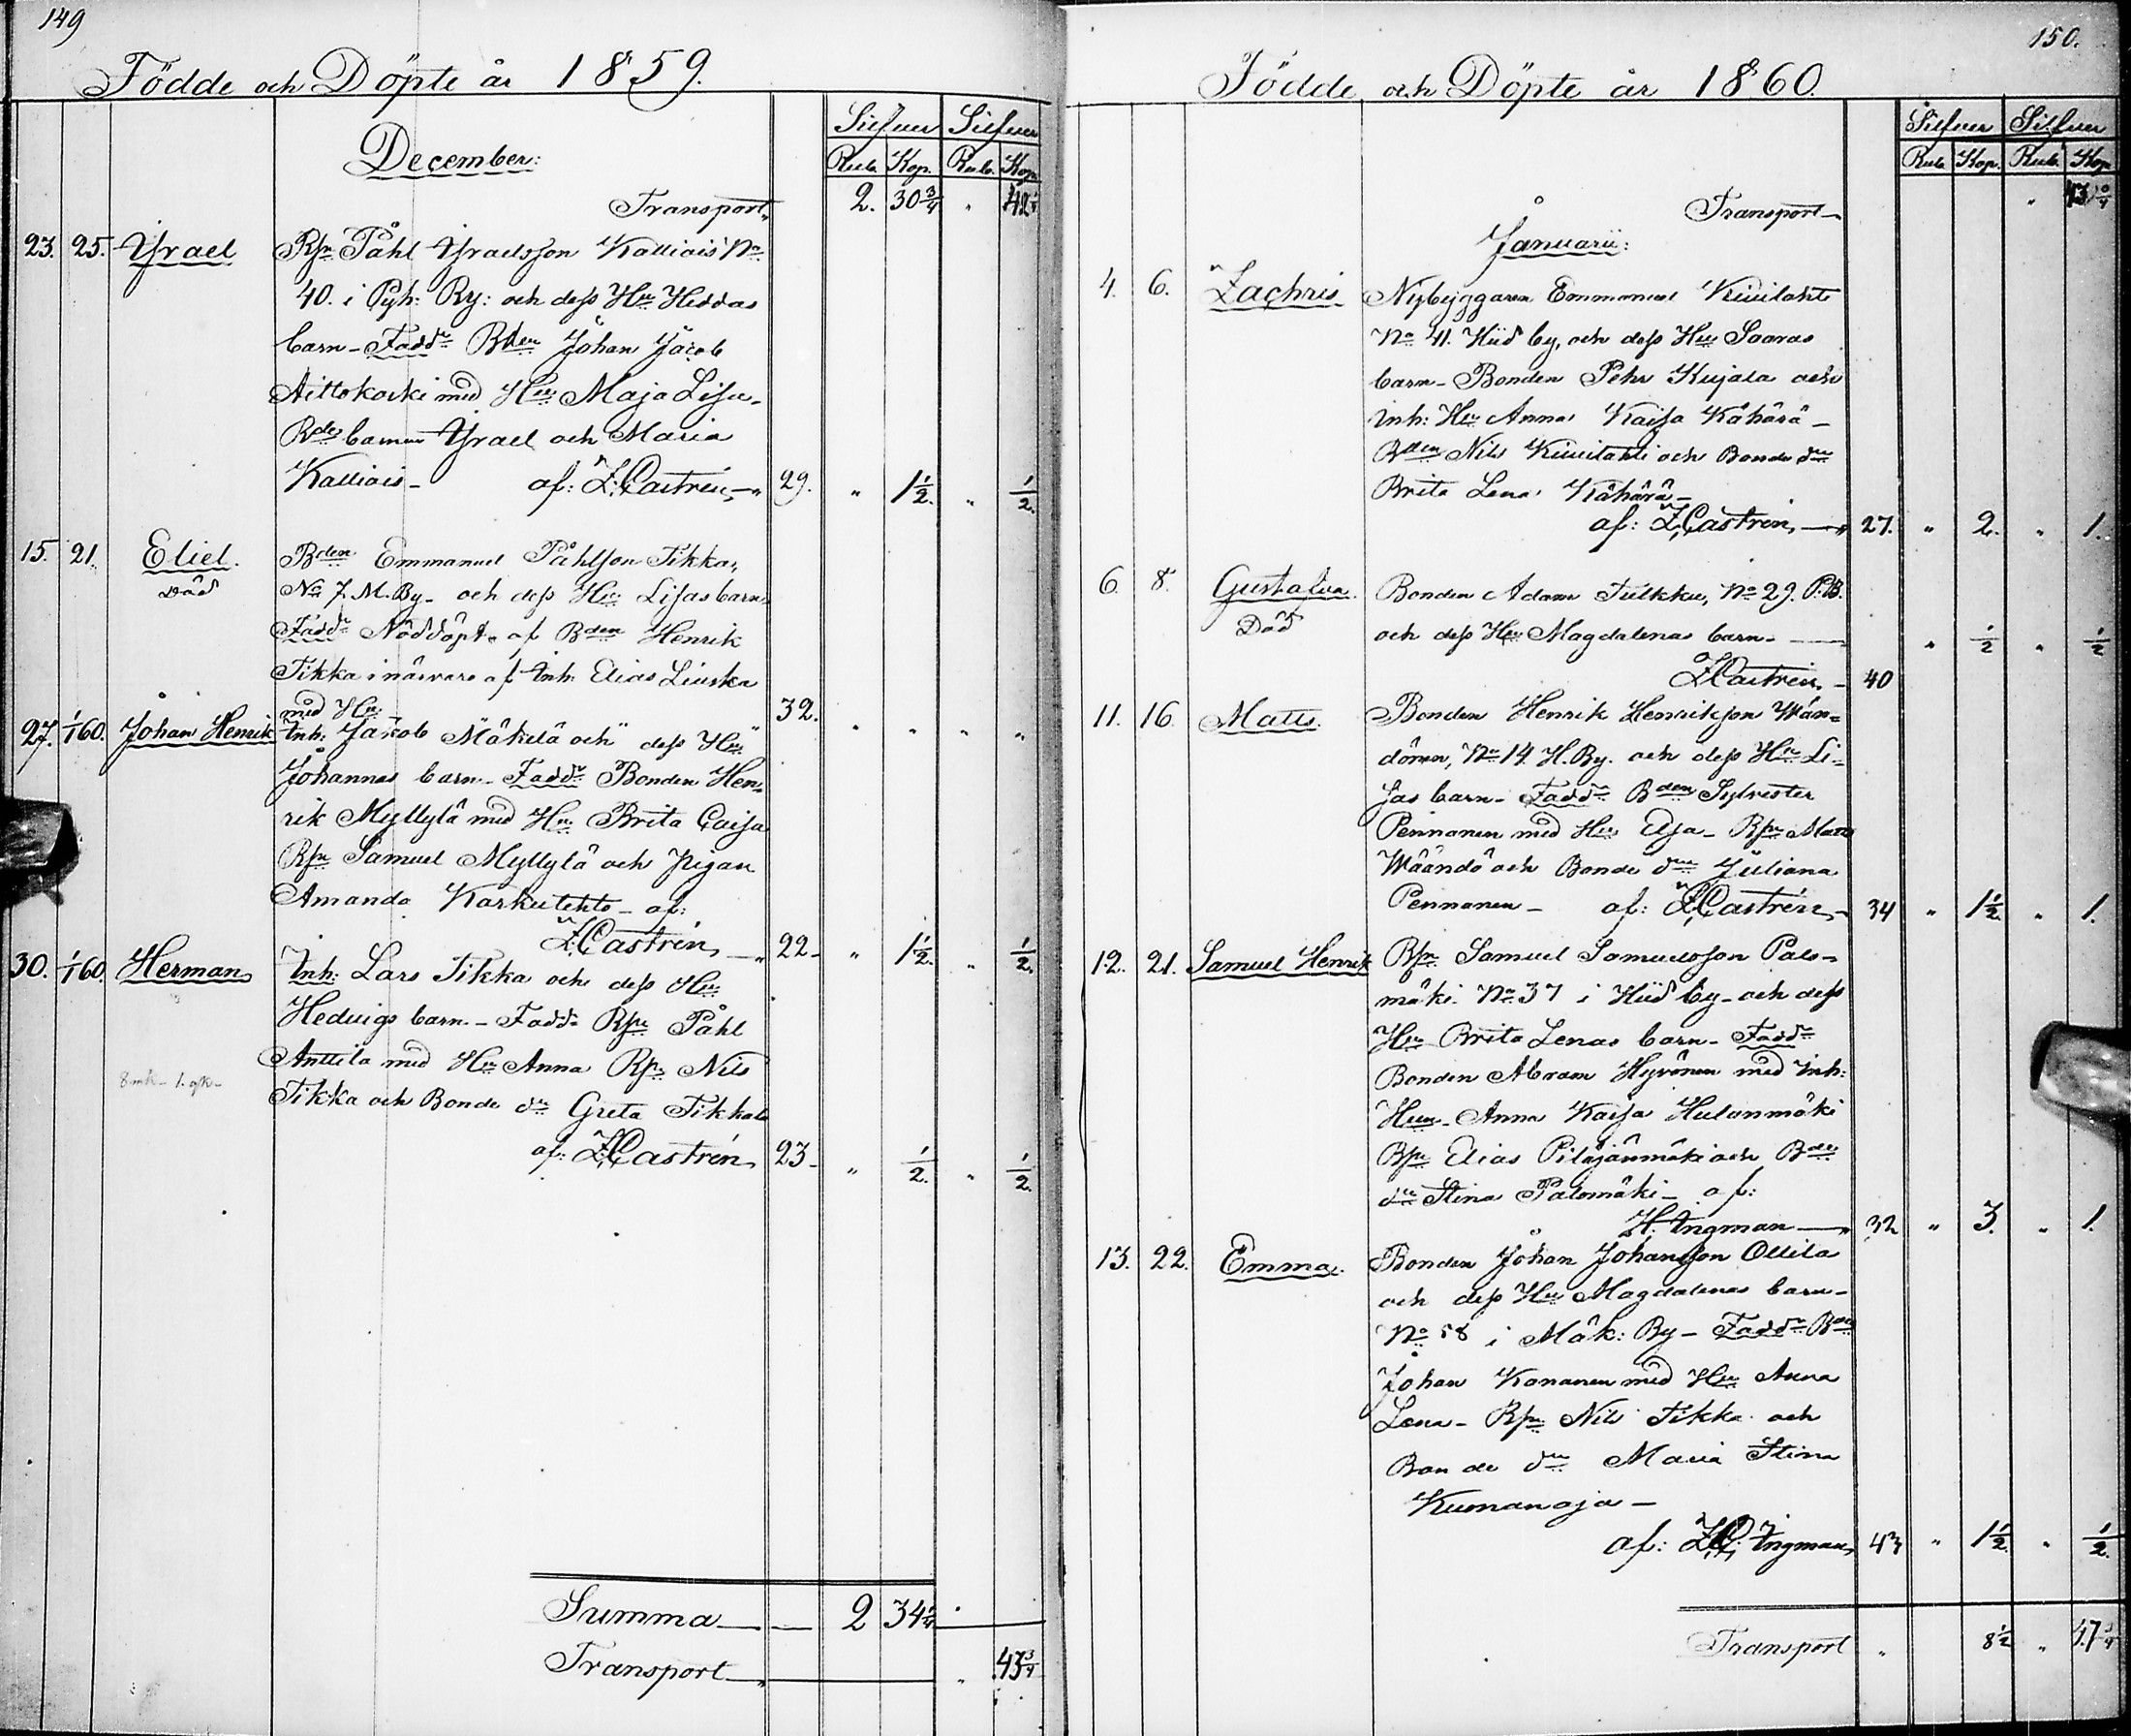 149
Födde och Döpte år 1859.
Silfver Silfver
December:
Rub. Kop. Rub. Kop.
Transport 2. 30 3/4 " 42 1/4
23. 25. Israel Bsn Påhl Israelsson Kalliais No
40. i Pyh: By: och dess Hu Heddas
barn - Faddr Bden Johan Jacob
Aittokoski med Hu Maja Lisa -
Bde barnen Israel och Maria
Kalliais - af: Z. Castrén, - 29. " 1 1/2 " 1/2.
15. 21. Eliel. Bden Emmanuel Påhlsson Tikka,
Död No 7. M. By - och dess Hu Lisas barn
Faddr Nöddöpt af Bden Henrik
Tikka i närvaro af Inh. Elias Liuska
med Hu 32. " " " "
27. 1/1 60. Johan Henrik Inh: Jacob Mäkelä och dess Hu
Johannas barn - Faddr Bonden Hen=
rik Myllylä med Hu Brita Caisa
Bsn Samuel Myllylä och pigan
Amanda Karkulehto - af:
Z. Castrén, - 22 - " 1 1/2. " 1/2.
30. 1/1 60. Herman Inh: Lars Tikka och dess Hu
Hedvigs barn - Fadd: Bsn Påhl
Anttila med Hu Anna Bsn Nils
8 mk - 1.
Tikka och Bonde dr Greta Tikkala
af: Z. Castrén 23 - " 1/2. " 1/2.
Summa 2 34 1/4
Transport " 43 3/4
150.
Födde och Döpte år 1860.
Silfver Silfver
Rub. Kop. Rub. Kop.
Transport - " 43 3/4
Januarii:
4. 6. Zachris Nybyggaren Emmanuel Kivilahti
No 41. Hiid by, och dess Hu Saaras
barn - Bonden Pehr Kujala och
Inh: Hu Anna Kaisa Kähärä -
Bden Nils Kivilahti och Bonde dr
Brita Lena Kähärä -
af: Z. Castrén, - 27. " 2. " 1.
6. 8. Gustafva. Bonden Adam Tulkku, No 29. P. B.
Död och dess Hu Magdalenas barn - " 1/2 " 1/2
Z. Castrén. - 40
11. 16. Matts. Bonden Henrik Henriksson Wän=
dönen, No 14. H. By. och dess Hu Li=
sas barn - Faddr Bden Sylvester
Pennanen med Hu Elsa - Bsn Matts
Wäändö och Bonde dr Juliana
Pennanen - af: Z. Castrén, - 34 " 1 1/2 " 1.
12. 21. Samuel Henrik Bsn Samuel Samuelsson Palo=
mäki No 37 i Hiid by - och dess
Hu Brita Lenas barn - Faddr
Bonden Abram Hyvönen med Inh:
Hun Anna Kaisa Hulanmäki
Bsn Elias Pilajänmäki och Bde
dr Stina Palomäki - af:
H. Ingman - 32 " 3. " 1.
13. 22. Emma. Bonden Johan Johansson Ollila
och dess Hu Magdalenas barn -
No 58 i Mäk: By - Faddr Bden
Johan Kananen med Hu Anna
Lena - Bsn Nils Tikka och
Bonde dr Maria Stina
Kumanoja -
af: Ingman, 43 " 1 1/2. " 1/2.
Transport " 8 1/2 " 47 3/4